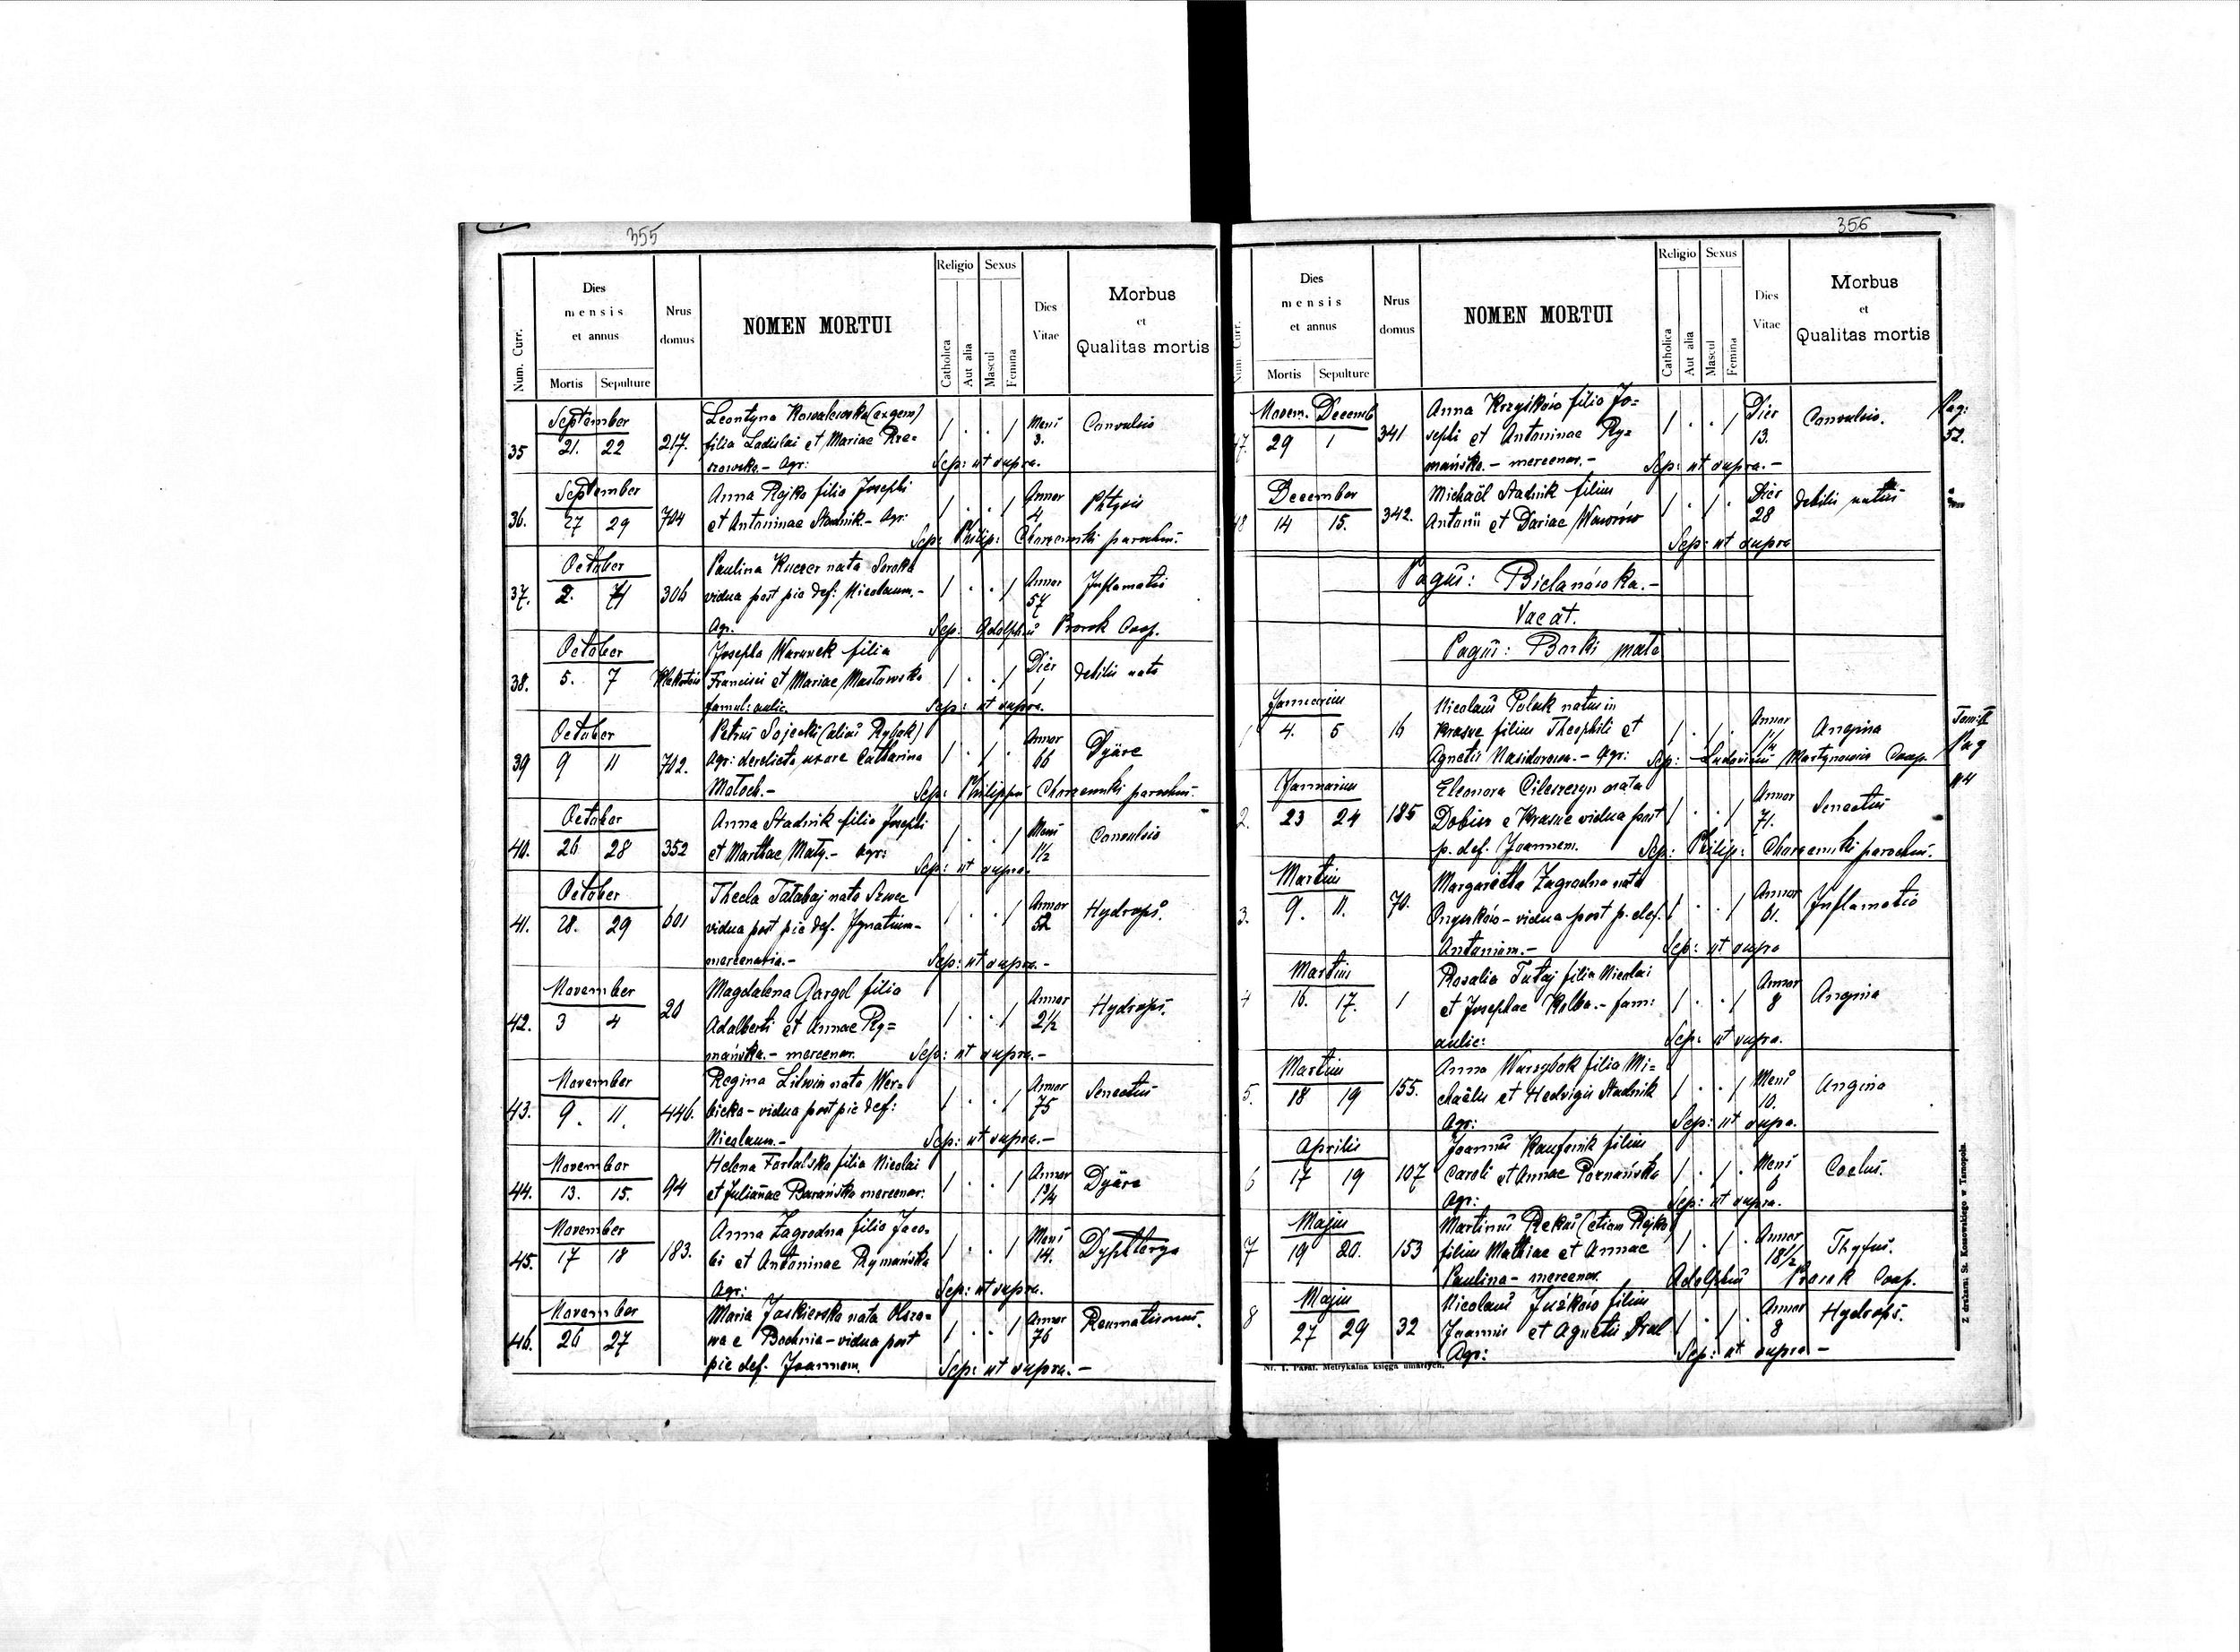 355
Num. Curr.
Dies mensis et annus
Mortis Sepulture
Nrus domus
NOMEN MORTUI
Religio
Catholica
Aut alia
Sexus
Mascul
Femina
Dies Vitae
Morbus et Qualitas mortis
September
35 21. 22 217. Leontyna Kowalewska (ex gem)
filia Ladislai et Mariae Rze-
szowska. - Agr: Mens 3. Convulsio
Sep: ut supra.
September
36. 27 29 704 Anna Rejko filia Josephi
et Antoninae Stadnik - Agr: Annor 4 Phtysis
Sep: Philip: parochus.
October
37. 2. 4 306 Paulina Kuczer nata Soroka
vidua post pie def: Nicolaum. -
Agr. Annor 57 Inflamatio
Sep: Adolphus Prorok Coop.
October
38. 5. 7 Josepha Warunek filia
Francisci et Mariae Masłowska
famul: aulic. Dier 1 debilis nata
Sep: ut supra.
October
39 9 11 702. Petrus Sojecki (alias Rybak)
Agr: derelicta uxore Catharina
Motoch. - Annor 66 Dyäre
Sep: Philippus parochus.
October
40. 26 28 352 Anna Stadnik filia Josephi
et Marthae Matÿ. - Agr: Mens 1½ Convulsio
Sep: ut supra.
October
41. 28. 29 601 Thecla Tatabaj nata Szwec
vidua post pie def. Ignatium -
mercenaria. - Annor 52 Hydrops.
Sep: ut supra. -
November
42. 3 4 20 Magdalena Gargol filia
Adalberti et Annae Ry=
mańska. - mercenar. Annor 2½ Hydrops.
Sep: ut supra. -
November
43. 9. 11. 446. Regina Litwin nata Wer=
bicka - vidua post pie def:
Nicolaum. - Annor 75 Senectus
Sep: ut supra. -
November
44. 13. 15. 94 Helena filia Nicolai
et Julianae Barańska mercenar: Annor 1¾ Dyäre
November
45. 17 18 183. Anna Zagrodna filia Jaco-
bi et Antoninae Rymańska
Agr: Mens 14. Dyphterya
Sep: ut supra.
November
46. 26 27 Maria Jaskierska nata Olszo-
wa e Bochnia - vidua post
pie def. Joannem. Annor 76 Reumatismus.
Sep: ut supra. -
356
Num. Curr.
Dies mensis et annus
Mortis Sepulture
Nrus domus
NOMEN MORTUI
Religio
Catholica
Aut alia
Sexus
Mascul
Femina
Dies Vitae
Morbus et Qualitas mortis
Novem. Decemb
47. 29 1 341 Anna Krzyśków filia Jo=
sephi et Antoninae Ry=
mańska. - mercenar. - Dier 13. Convulsio. Pag: 52.
Sep: ut supra. -
December
48 14 15. 342. Michaël Stadnik filius
Antonii et Dariae Dier 28 debilis natus
Sep: ut supra
Pagus: Bielanówka. -
Vacat.
Pagus: Borki małe
Januarius
1 4. 5 16 Nicolaus Polak natus in
Krasne filius Theophili et
Agnetis - Agr: Annor Angina
Sep: Ludovicus Martynowicz Coop. Pag 44
Januarius
2. 23 24 185 Eleonora nata
Dobisz e Krasne vidua post
p. def. Joannem. Annor 71. Senectus
Sep: Philip: parochus.
Martius
3. 9. 11. 70. Margaretha Zagrodna nata
vidua post p. def.
Antonium. - Annor 61. Inflamatio
Sep: ut supra
Martius
4 16. 17. 1 Rosalia Tutaj filia Nicolai
et Josephae Kolba. - fam:
aulic: Annor 8 Angina
Sep: ut supra.
Martius
5. 18 19 155. Anna Warzybok filia Mi=
chaëlis et Hedvigis Stadnik
Agr: Mens 10. Angina
Sep: ut supra.
Aprilis
6 17 19 107 Joannes filius
Caroli et Annae Poznańska
Agr: Mens 6
Sep: ut supra.
Majus
7 19 20. 153 Martinus Rekus (etiam Rejko)
filius Mathiae et Annae
Paulina - mercenar. Annor 18½ Thyfus.
Adolphus Prorok Coop.
Majus
8 27 29 32 Nicolaus Juśków filius
Joannis et Agnetis Dral
Agr: Annor 8 Hydrops.
Sep: ut supra -
Nr. 1. Paraf. Metrykalna księga umarłych.
Z drukarni St. Kossowskiego w Tarnopolu.